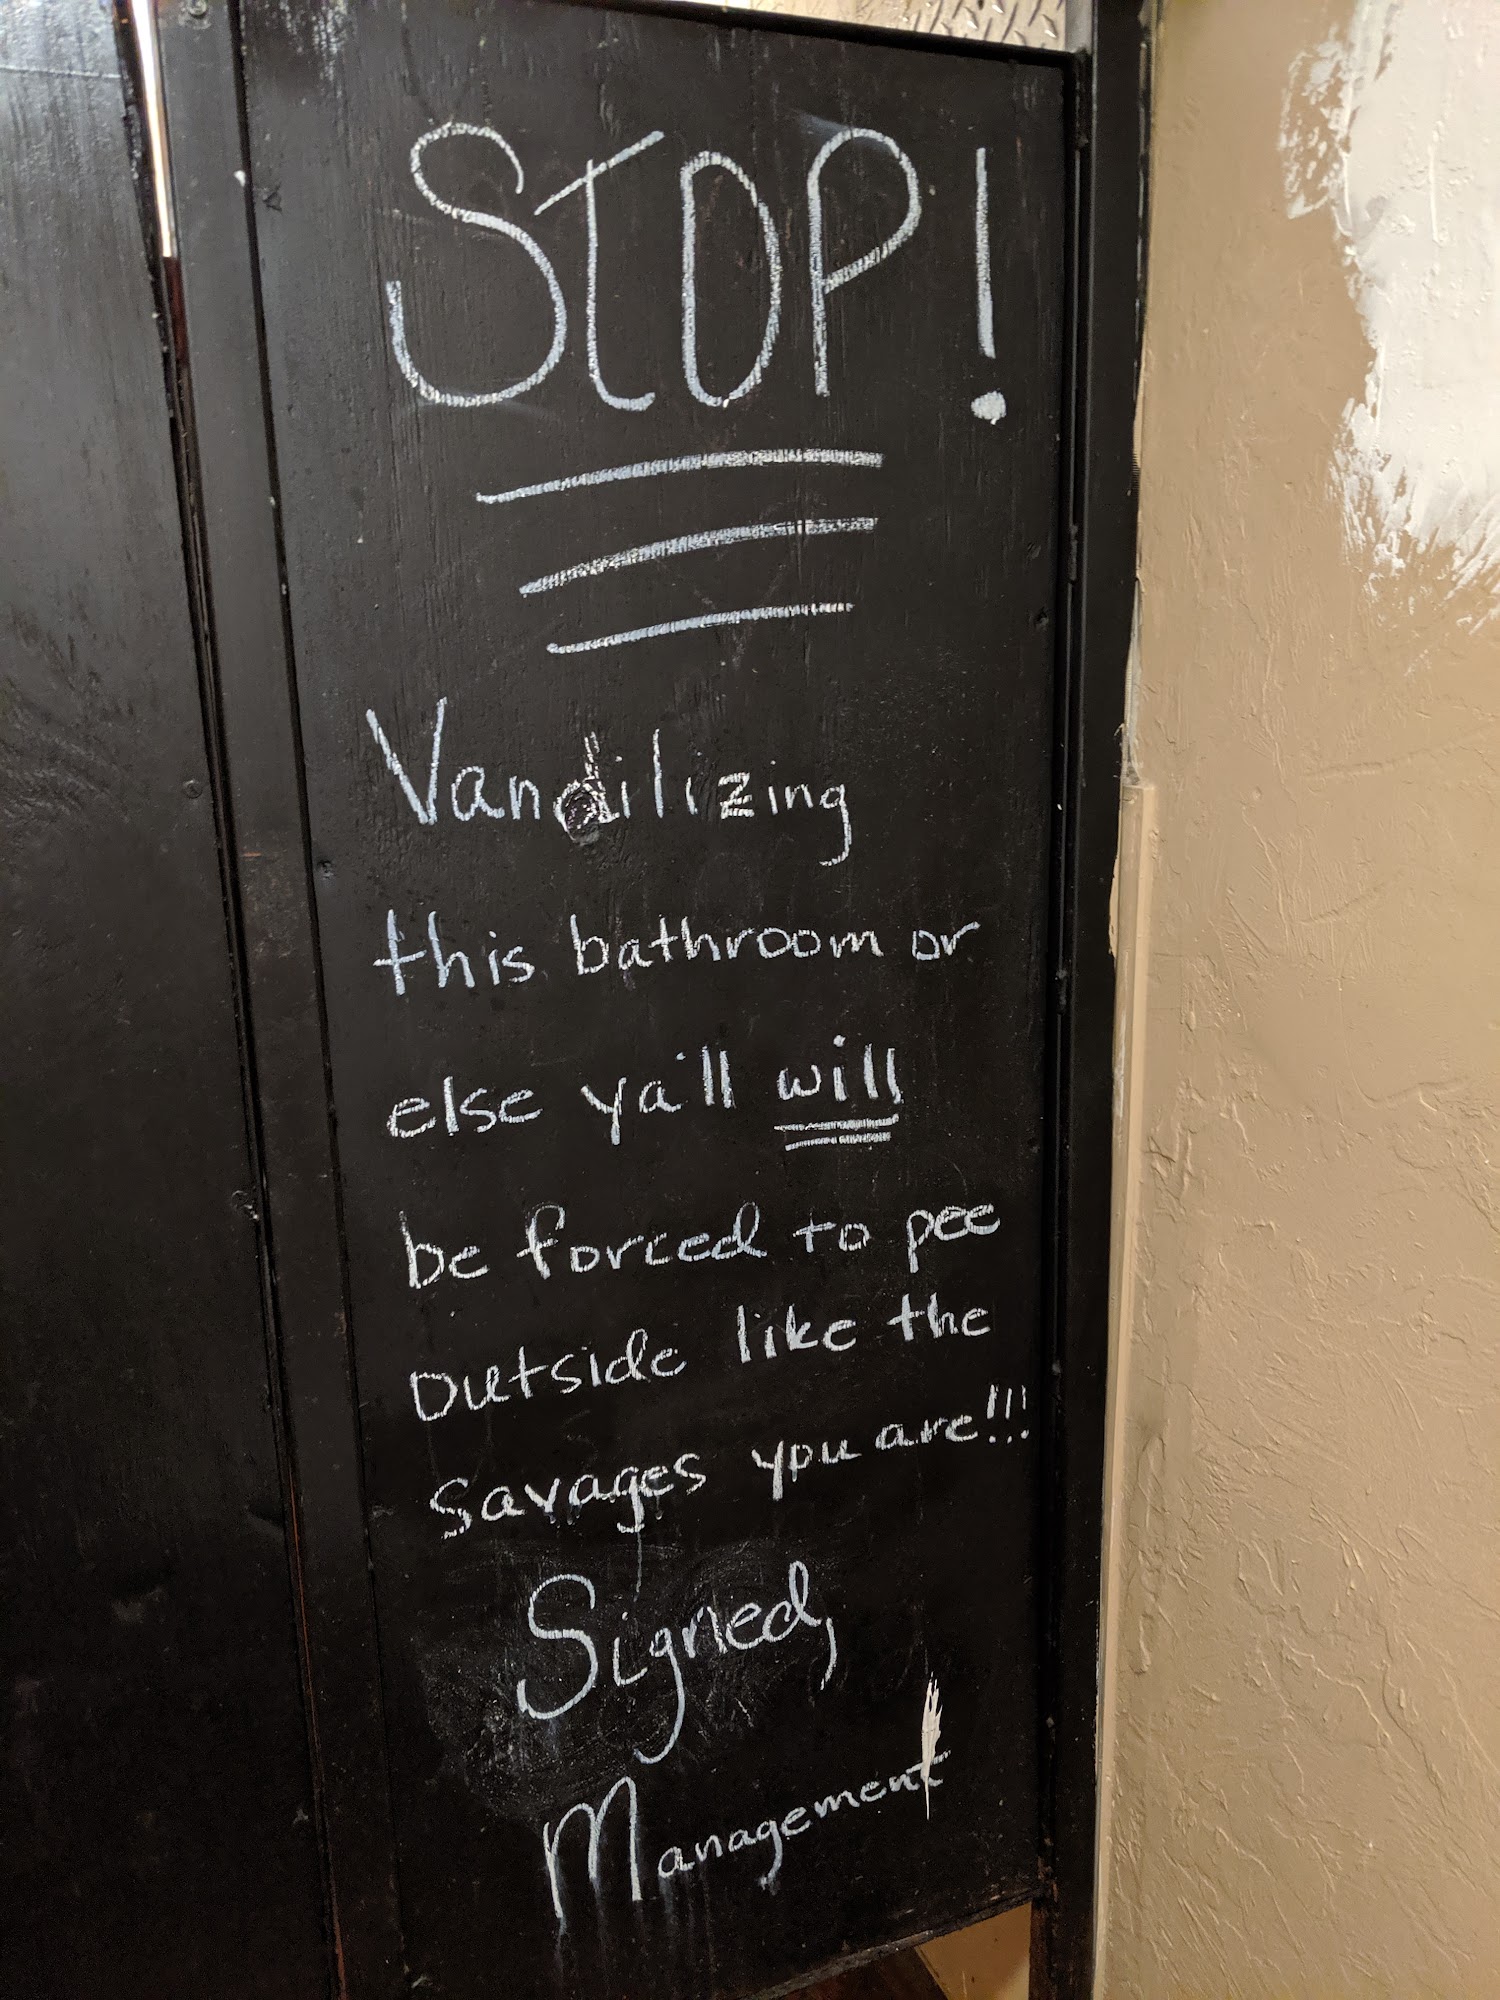 STOP!
Vandilizing
this bathroom or
else ya'll will
be forced to pee
outside like the
savages you are!!!
Signed,
Management